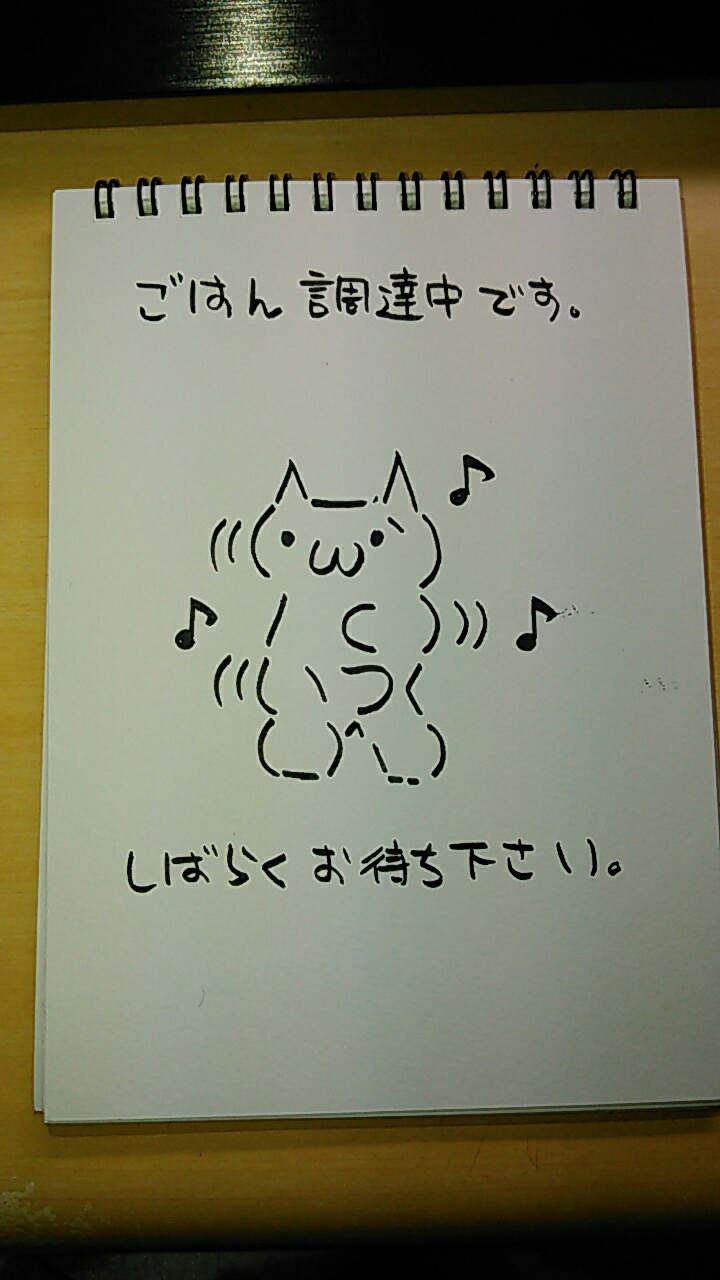 ごはん調達中です。
∧＿∧ ♪
((（・ω・｀)
♪ / ⊂ ))) ♪
((( ヽつ〈
(＿)^ヽ__)
しばらくお待ち下さい。